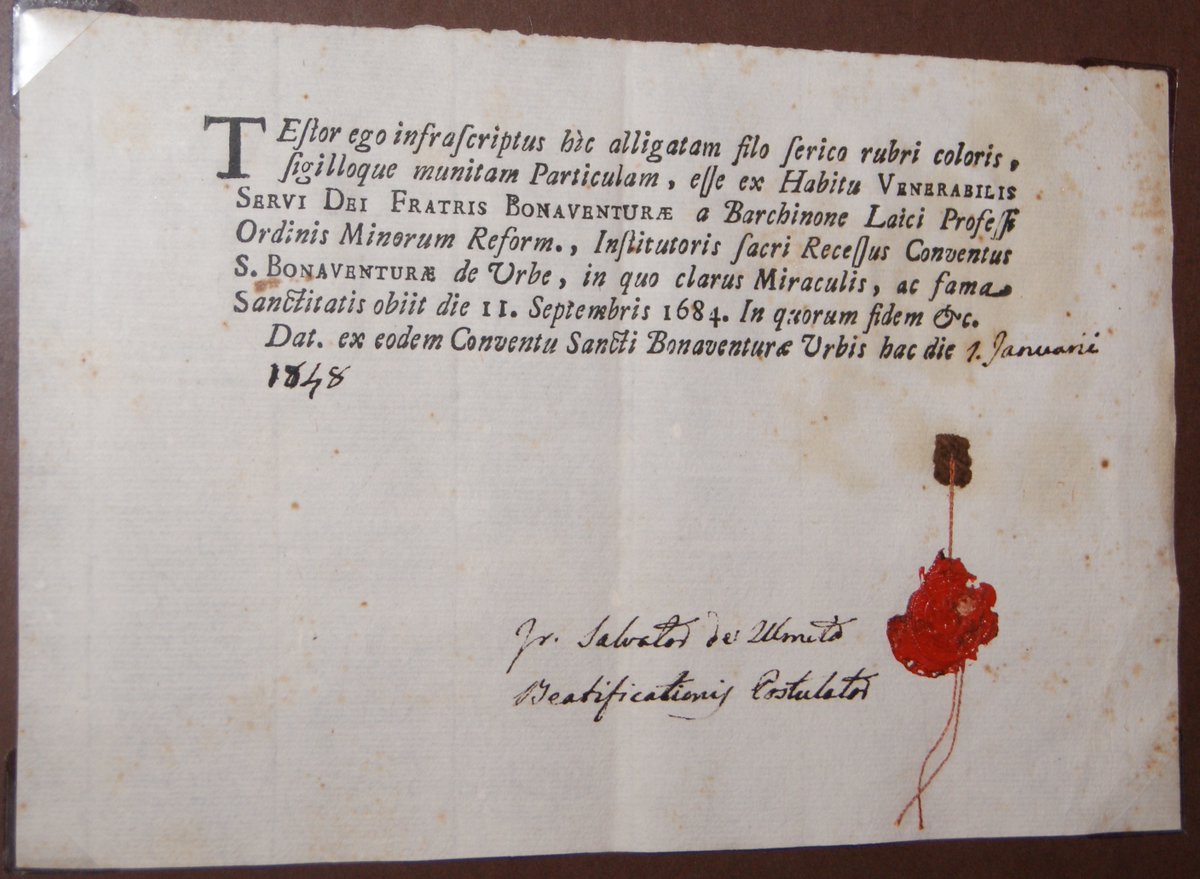 TEſtor ego infraſcriptus hìc alligatam filo ſerico rubri coloris,
ſigilloque munitam Particulam, eſſe ex Habitu VENERABILIS
SERVI DEI FRATRIS BONAVENTURÆ a Barchinone Laici Profeſſi
Ordinis Minorum Reform., Inſtitutoris ſacri Receſſus Conventus
S. BONAVENTURÆ de Urbe, in quo clarus Miraculis, ac fama
Sanctitatis obiit die 11. Septembris 1684. In quorum fidem &c.
Dat. ex eodem Conventu Sancti Bonaventuræ Urbis hac die 1. Januarii
1848
Fr. Salvator de
Beatificationis Postulator